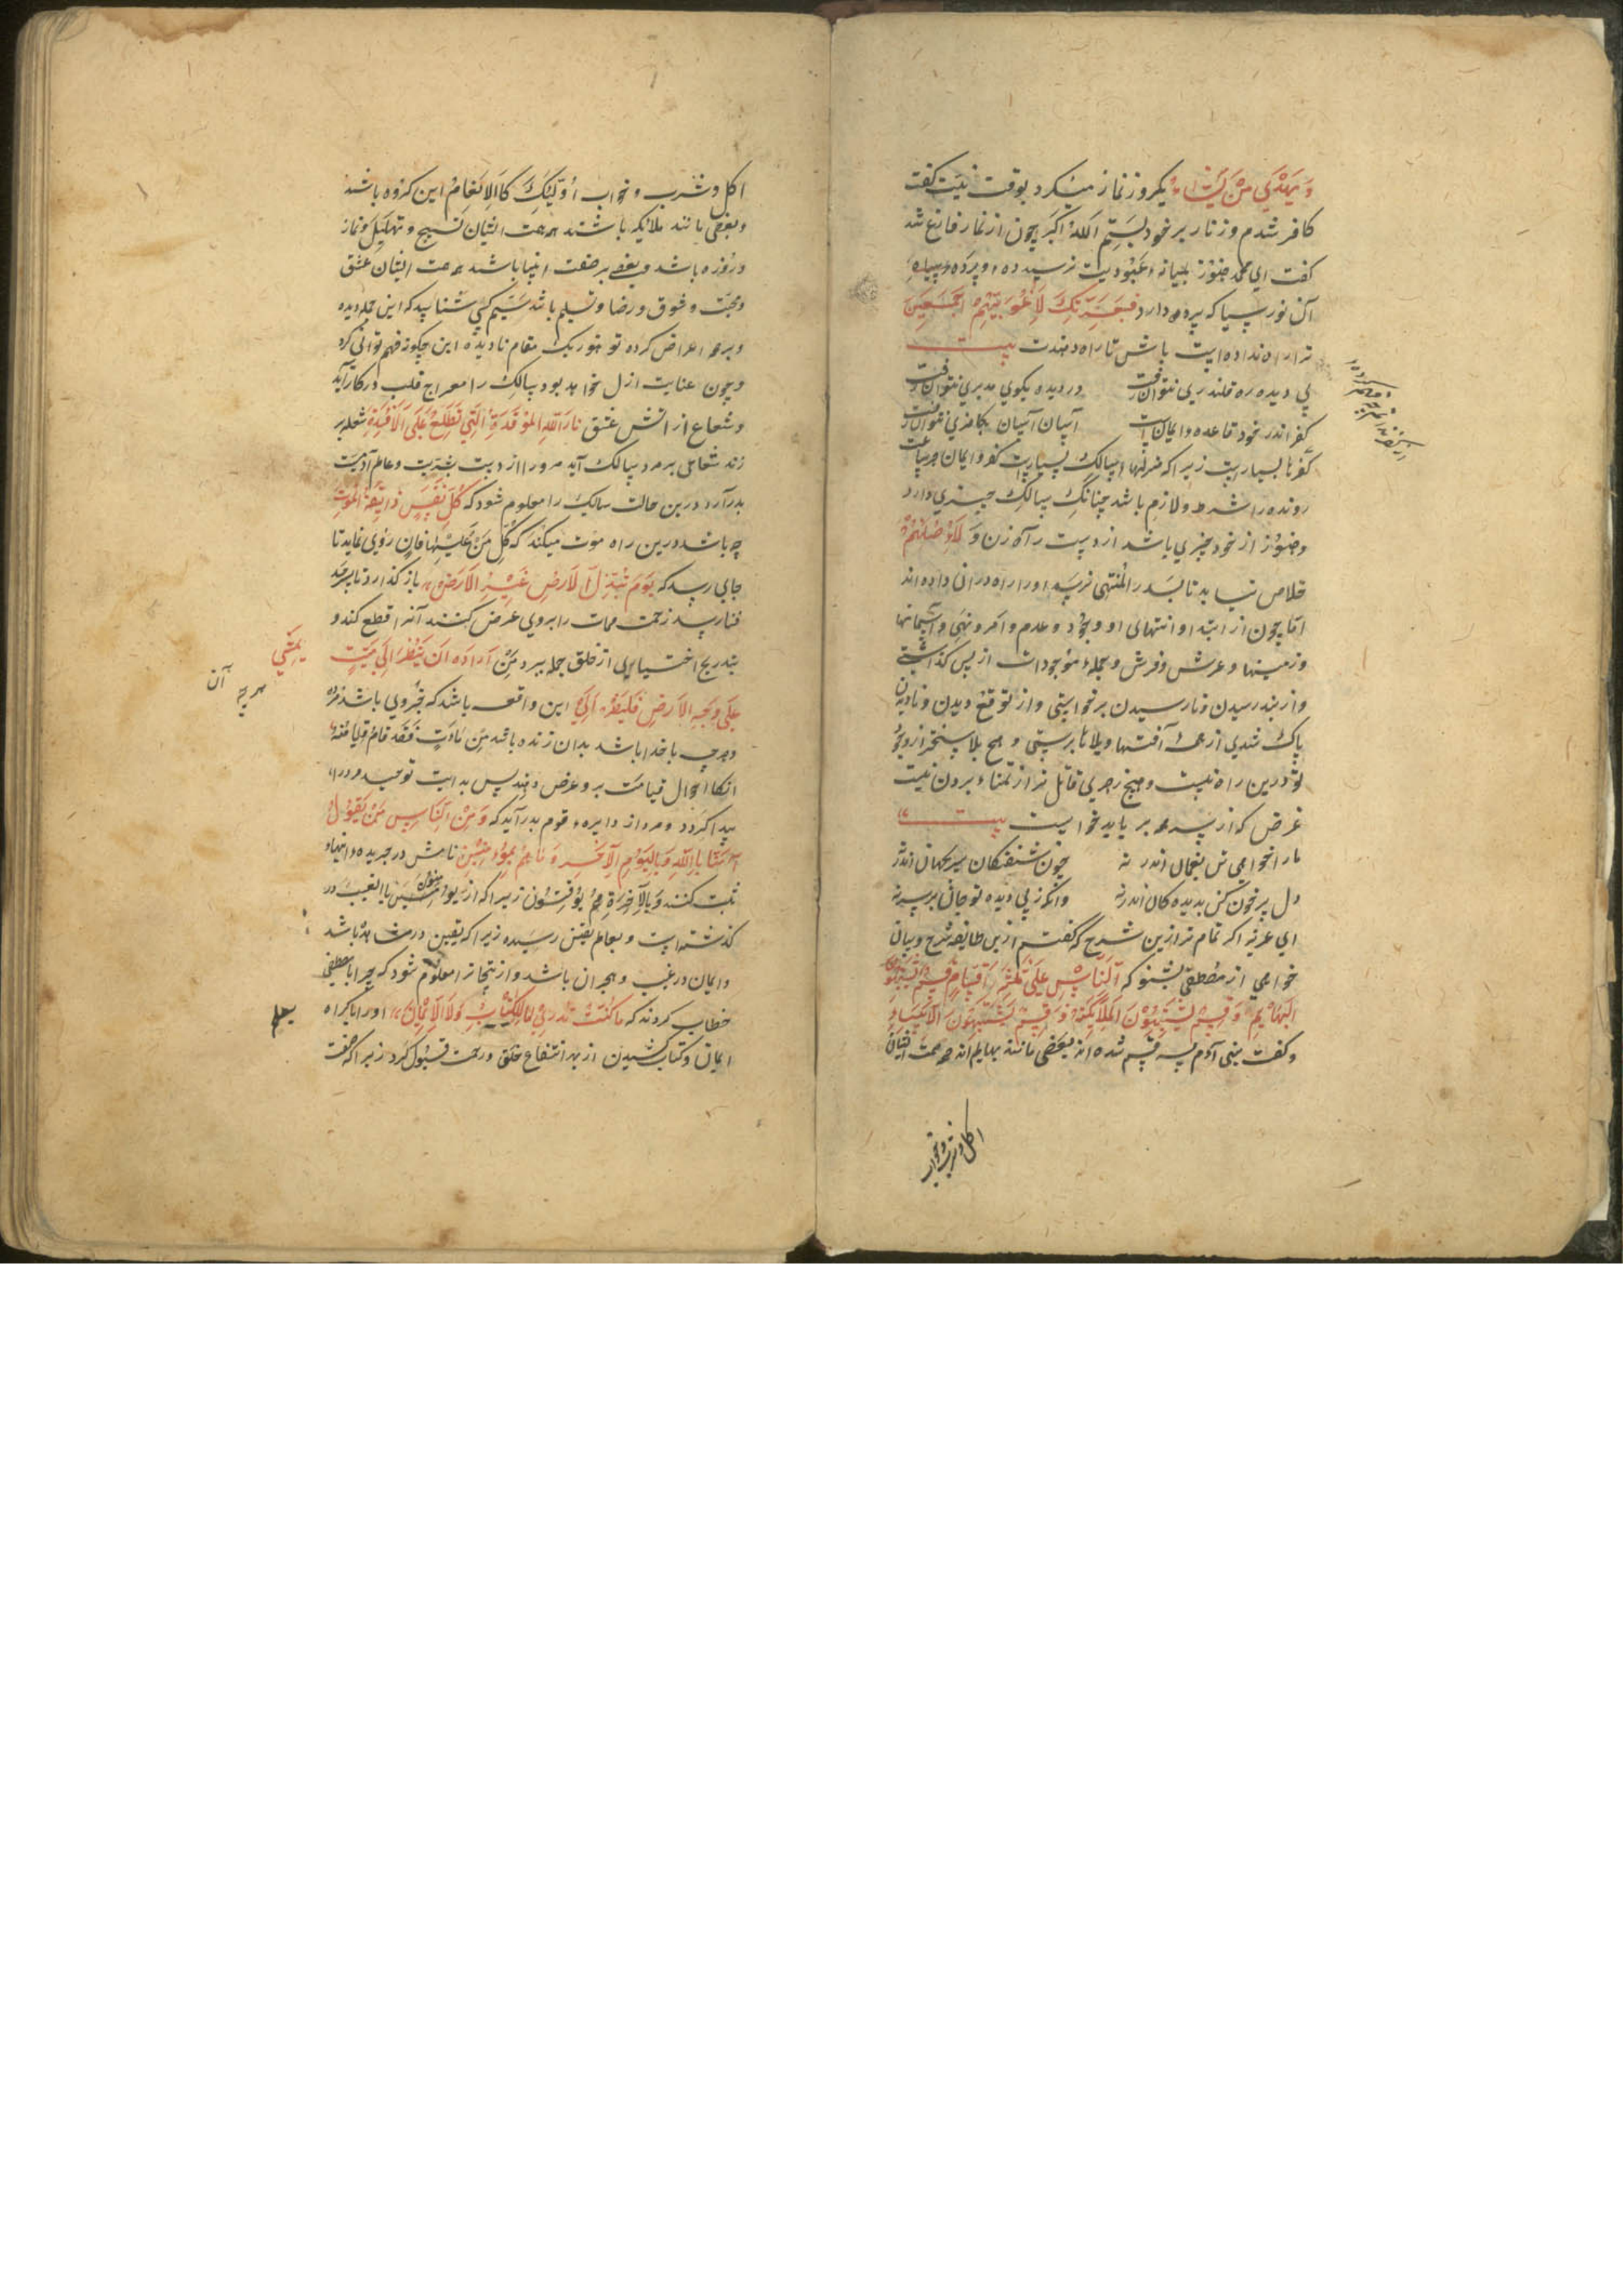 وَ یَهْدِي مَنْ یَشَاءُ یکروز نماز میکرد بوقت نیت کفت
کافر شدم و زنار بر خود بستم الله اکبر چون از نماز فارغ شد
کفت ای محمد هنوز بمیانه عبودیت نرسیده و پرده سیاه
آن نور سیا که پرده دارد فَبِعِزَّتِكَ لَأُغْوِيَنَّهُمْ أَجْمَعِينَ
ترا راه نداده است باش تا راه دهندت بیت
بی دیده ره قلندری نتوان رفت دزدیده بکوی مدبری نتوان رفت
کفر اندر خود قاعده ایمان است آسان آسان بکافری نتوان رفت
کفرها بسیارست زیرا که منزلهای سالک بسیارست کفر و ایمان هر ساعت
رونده را شرط و لازم باشد چنانک سالک چیزی دارد
و هنوز از خود چیزی باشد از دست راه زن وَ لَأُضِلَّنَّهُمْ
خلاص نیابد تا بسدر المنتهی نرسد او را راه در آن داده اند
اما چون از ابتدا و انتهای او وجود و عدم و امر و نهی و آسمانها
و زمینها و عرش و فرش و جمله موجودات از پس کذاشت
و از بند رسیدن و نارسیدن برخواستی و از توقع دیدن و نادیدن
پاک شدی از همه آفتها و بلاها برستی و هیچ بلا سخت‌تر از وجود
تو درین راه نیست و هیچ زهری قاتل‌تر از تمنا بردن نیست
غرض که از سر همه بر باید خواست بیت
ما را خواهی تن بغمان اندر نه چون شیفتکان سر بجهان اندر نه
دل پر خون کن بدیده کان اندر نه وانکه ز پی دیده تو جان بر سر نه
ای عزیز اکر تمام تر ازین شرح که کفتم ازین طایفه شرح و بیان
خواهی از مصطفی بشنو که اَلنَّاسُ عَلَی ثَلَثَةِ اَقْسَامٍ قِسْمٌ یُشْبِهُونَ
الْبَهَائِمِ وَ قِسْمٌ یُشْبِهُونَ الْمَلَائِکَةَ وَ قِسْمٌ یُشْبِهُونَ الْاَنْبِیَاءِ
و کفت بنی آدم سه قسم شده اند بعضی مانند بهایم اند همه همت ایشان
اکل و شرب و خواب
اکل و شرب و خواب أُولَئِكَ كَالْأَنْعَامِ این کروه باشند
و بعضی مانند ملائکه باشند همه همت ایشان تسبیح و تهلیل و نماز
و روزه باشد و بعضی بر صفت انبیا باشند همه همت ایشان عشق
و محبت و شوق و رضا و تسلیم باشد ستیم کسی شناسد که این جمله دیده
و بر همه اعراض کرده تو هنوز یک مقام نادیده این چکونه فهم توانی کرد
و چون عنایت ازل خواهد بود سالک را معراج قلب در کار آید
و شعاع از آتش عشق نَارُ اللهِ الْمُوقَدَةُ الَّتِي تَطَّلِعُ عَلَى الْأَفْئِدَةِ شعله بر
زند شعاعی بر مرد سالک آید مرو را از دست بشریت و عالم آدمیت
بدر آرد درین حالت سالک را معلوم شود که كُلُّ نَفْسٍ ذَائِقَةُ الْمَوْتِ
چه باشد و درین راه موت میکند که کُلُّ مَنْ عَلَیْهَا فَانٍ روی نماید تا
جایی رسد که یَوْمَ تُبَدَّلُ الْاَرْضُ غَیْرَ الْاَرْضِ باز کذارد تا بسرحد
فنا رسد زحمت ممات را بر وی عرض کنند آنرا قطع کند و
بتدریج اختیاری از خلق جمله ببرد مَنْ اَرَادَ اَنْ یَنْظُرَ اِلَی مَیِّتٍ یَمْشِي
عَلَی وَجْهِ الْاَرْضِ فَلْیَنْظُرْ اِلَی این واقعه باشد که بیرونی باشد مرده
و هرچه با خدا باشد بدان زنده باشد مَنْ مَاتَ فَقَدْ قَامَتْ قِیَامَتُهُ
انکاه احوال قیامت برو عرض دهند پس بدایت توحید مرد را
پیدا کردد و مرد از دایره قوم بدر آید که وَ مِنَ النَّاسِ مَنْ یَقُولُ
آمَنَّا بِاللَّهِ وَبِالْيَوْمِ الْآخِرِ وَمَا هُمْ بِمُؤْمِنِينَ نامش در جریده انبیا
ثبت کنند وَبِالْآخِرَةِ هُمْ يُوقِنُونَ زیرا که از یؤمنون بالغیب در
کذشته است و بعالم یقین رسیده زیرا که یقین در مشاهده باشد
و ایمان در غیب و هجران باشد و از اینجا ترا معلوم شود که چرا با مصطفی
خطاب کردند که مَا كُنْتَ تَدْرِي مَا الْكِتَابُ وَلَا الْإِيمَانُ او را با کراه
ایمان و کتاب کشیدن از بهر انتفاع خلق و رحمت قبول کرد زیرا که صفت
هرچه آن